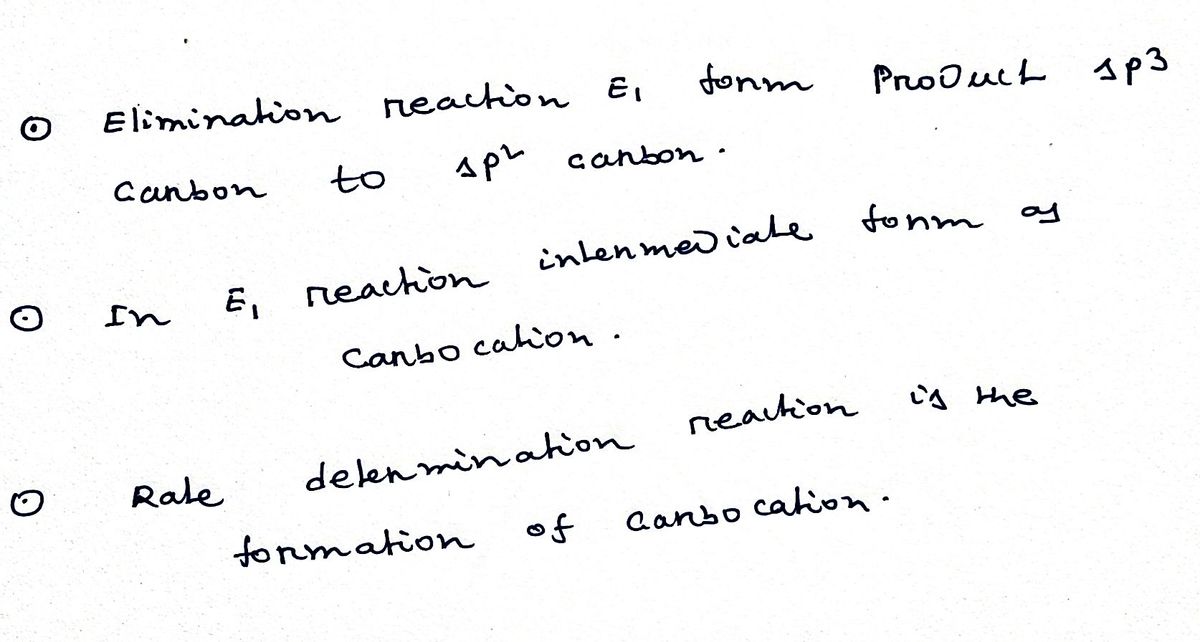 ⊙ Elimination reaction E₁ form Product sp3
carbon to sp² carbon.
⊙ In E₁ reaction intermediate form as
Carbocation.
⊙ Rate determination reaction is the
formation of carbocation.